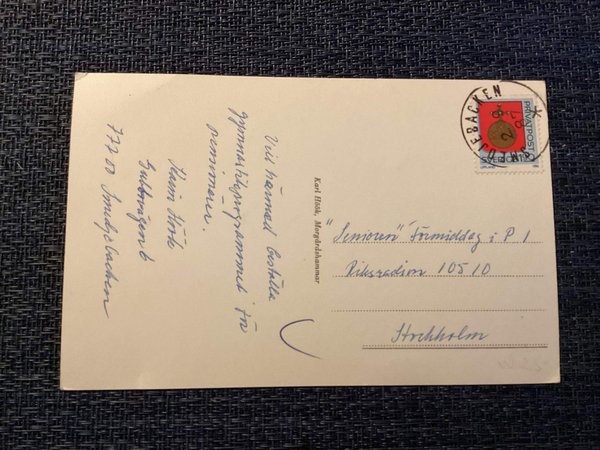 Vill härmed beställa
gymnastikprogrammet för
pensionärer.
Karin Höök
6
77700 Smedjebacken
Karl Höök, Morgårdshammar
SMEDJEBACKEN
PRIVATPOST
SVERIGE
"Senioren" Förmiddag i P 1
Riksradion 10510
Stockholm